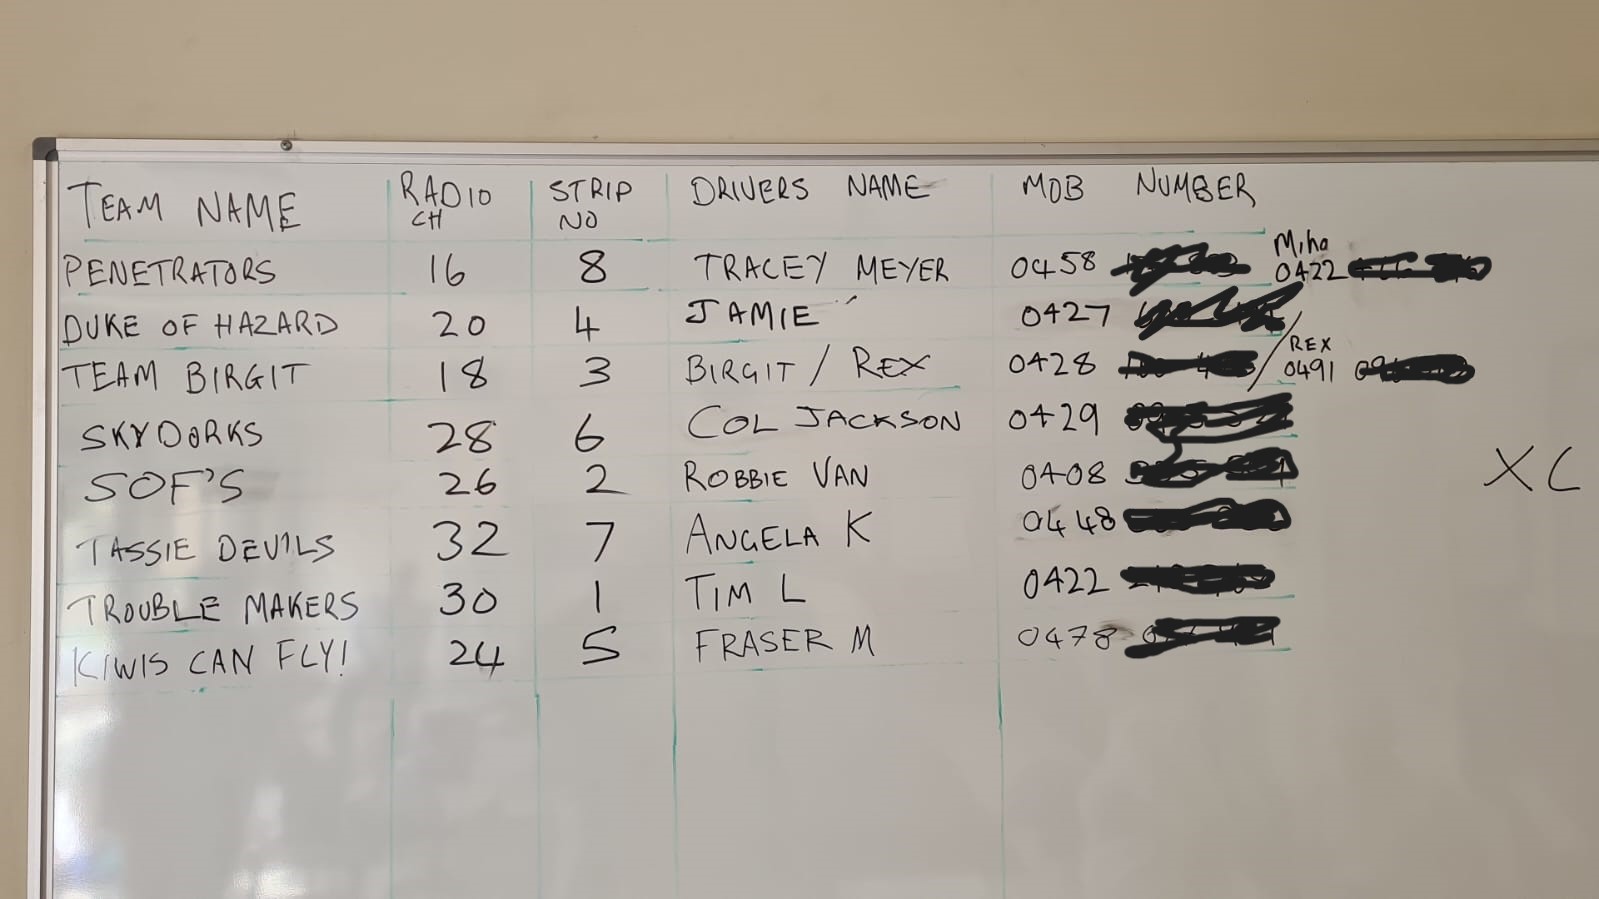 TEAM NAME RADIO CH STRIP NO DRIVERS NAME MOB NUMBER
PENETRATORS 16 8 TRACEY MEYER 0458 Miha 0422
DUKE OF HAZARD 20 4 JAMIE 0427
TEAM BIRGIT 18 3 BIRGIT / REX 0428 / REX 0491
SKYDORKS 28 6 COL JACKSON 0429
SOF'S 26 2 ROBBIE VAN 0408
TASSIE DEVILS 32 7 ANGELA K 0448
TROUBLE MAKERS 30 1 TIM L 0422
KIWIS CAN FLY! 24 5 FRASER M 0478
XC